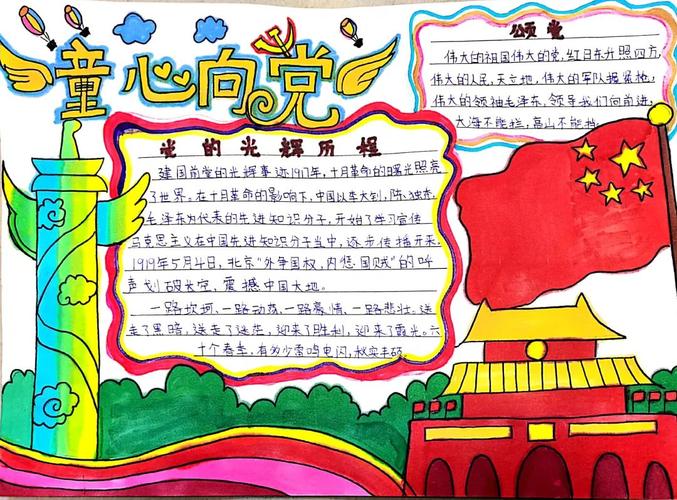 童心向党
颂党
伟大的祖国伟大的党,红日东升照四方,
伟大的人民,天立地,伟大的军队握紧枪,
伟大的领袖毛泽东,领导我们向前进,
大海不能拦,高山不能挡。
党的光辉历程
建国前党的光辉事迹1917年,十月革命的曙光照亮
了世界。在十月革命的影响下,中国以李大钊,陈独秀,
毛泽东为代表的先进知识分子,开始了学习宣传
马克思主义在中国先进知识分子当中,逐步传播开来,
1919年5月4日,北京"外争国权,内惩国贼"的呼
声划破长空、震撼中国大地。
一路坎坷、一路动荡、一路豪情、一路悲壮。送
走了黑暗,送走了迷茫,迎来了胜利,迎来了霞光。六
十个春华,有多少雷鸣电闪,秋实丰硕